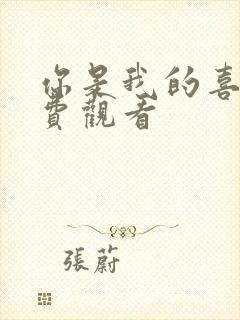 你是我的喜
費觀看
張蔚